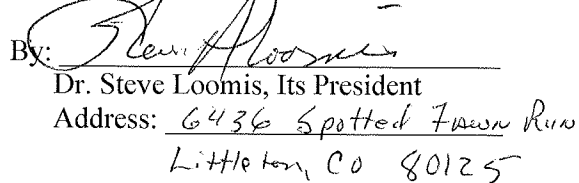 By: Steve A Loomis
Dr. Steve Loomis, Its President
Address: 6436 Spotted Fawn Run
Littleton, CO 80125